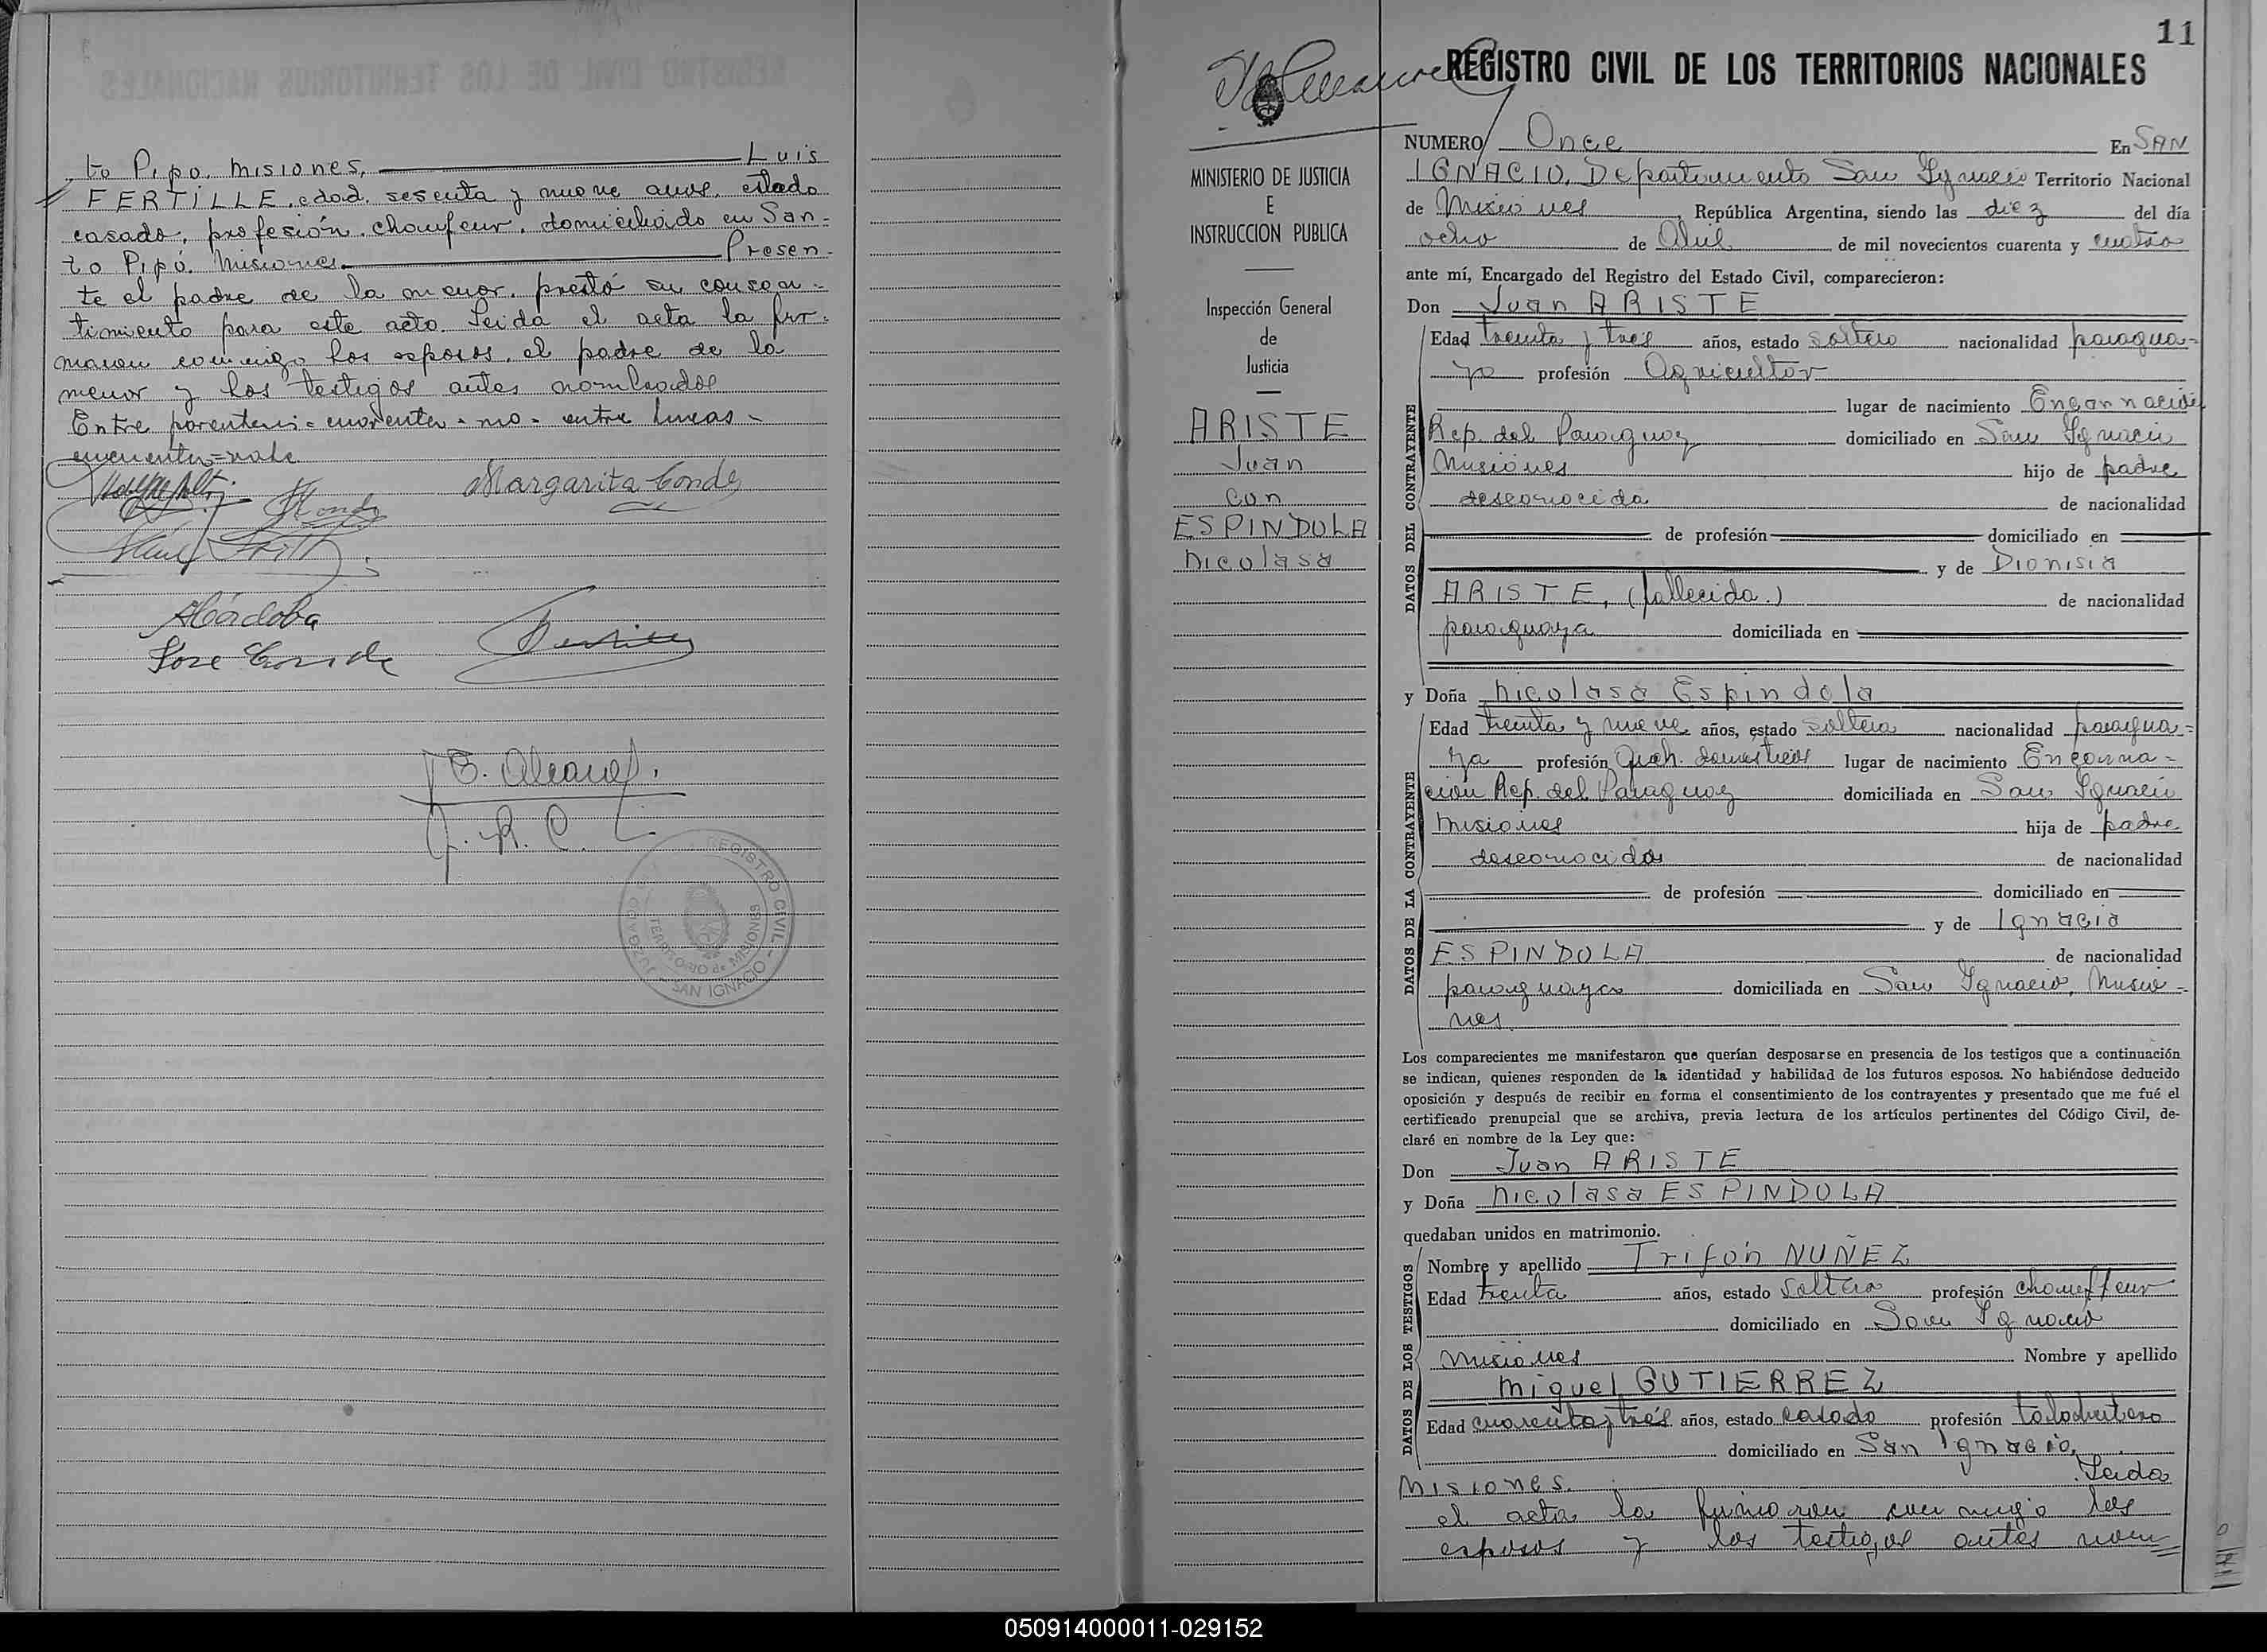 to Pipo. Misiones, Luis
FERTILLE, edad, sesenta y nueve años, estado
casado, profesión, chauffeur, domiciliado en San-
to Pipó. Misiones. Presen-
te el padre de la menor, prestó su consen-
timiento para este acto. Leida el acta la fir-
maron conmigo los esposos, el padre de la
menor y los testigos antes nombrados
Entre parentesis = cuarenta - no - entre lineas -
cincuenta = vale
Margarita Conde
ACórdoba
Jose Conde
J. R. C.
REGISTRO CIVIL - SAN IGNACIO - JUZGADO DE PAZ
TERRITORIO de MISIONES
11
REGISTRO CIVIL DE LOS TERRITORIOS NACIONALES
MINISTERIO DE JUSTICIA
E
INSTRUCCION PUBLICA
Inspección General
de
Justicia
ARISTE
Juan
con
ESPINDULA
Nicolasa
NUMERO Once En SAN
IGNACIO, Departamento San Ignacio Territorio Nacional
de Misiones, República Argentina, siendo las diez del día
ocho de Abril de mil novecientos cuarenta y cuatro
ante mí, Encargado del Registro del Estado Civil, comparecieron:
Don Juan ARISTE
DATOS DEL CONTRAYENTE
Edad treinta y tres años, estado soltero nacionalidad paragua-
yo profesión Agricultor
lugar de nacimiento Encarnación
Rep. del Paraguay domiciliado en San Ignacio
Misiones hijo de padre
desconocido de nacionalidad
de profesión domiciliado en
y de Dionisia
ARISTE, (fallecida.) de nacionalidad
paraguaya domiciliada en
y Doña Nicolasa Espindola
DATOS DE LA CONTRAYENTE
Edad treinta y nueve años, estado soltera nacionalidad paragua-
ya profesión Queh. domesticos lugar de nacimiento Encarna-
ción Rep. del Paraguay domiciliada en San Ignacio
Misiones hija de padre
desconocido de nacionalidad
de profesión domiciliado en
y de Ignacia
ESPINDOLA de nacionalidad
paraguaya domiciliada en San Ignacio, Misio-
nes
Los comparecientes me manifestaron que querían desposarse en presencia de los testigos que a continuación
se indican, quienes responden de la identidad y habilidad de los futuros esposos. No habiéndose deducido
oposición y después de recibir en forma el consentimiento de los contrayentes y presentado que me fué el
certificado prenupcial que se archiva, previa lectura de los artículos pertinentes del Código Civil, de-
claré en nombre de la Ley que:
Don Juan ARISTE
y Doña Nicolasa ESPINDOLA
quedaban unidos en matrimonio.
DATOS DE LOS TESTIGOS
Nombre y apellido Trifón NUÑEZ
Edad treinta años, estado soltero profesión chauffeur
domiciliado en San Ignacio
Misiones Nombre y apellido
Miguel GUTIERREZ
Edad cuarenta y tres años, estado casado profesión talabartero
domiciliado en San Ignacio,
Misiones. Leida
el acta la firmaron conmigo los
esposos y los testigos antes nom
050914000011-029152